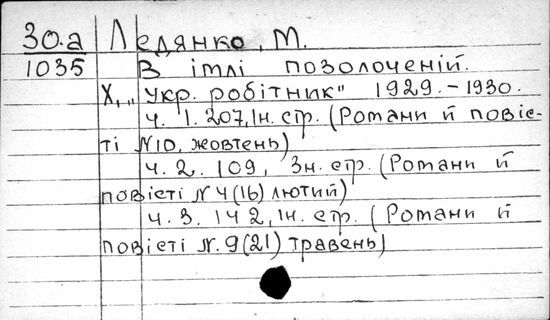 30.а Ледянко, М.
1035 В імлі позолоченій.
Х, „Укр. робітник" 1929.-1930.
ч. 1. 207, 1н. стр. (Романи й повіс-
ті №10, жовтень)
ч. 2. 109, 3н. стр. (Романи й
повісті №4(16) лютий)
ч. 3. 142, 1н. стр. (Романи й
повісті №.9(21) травень)